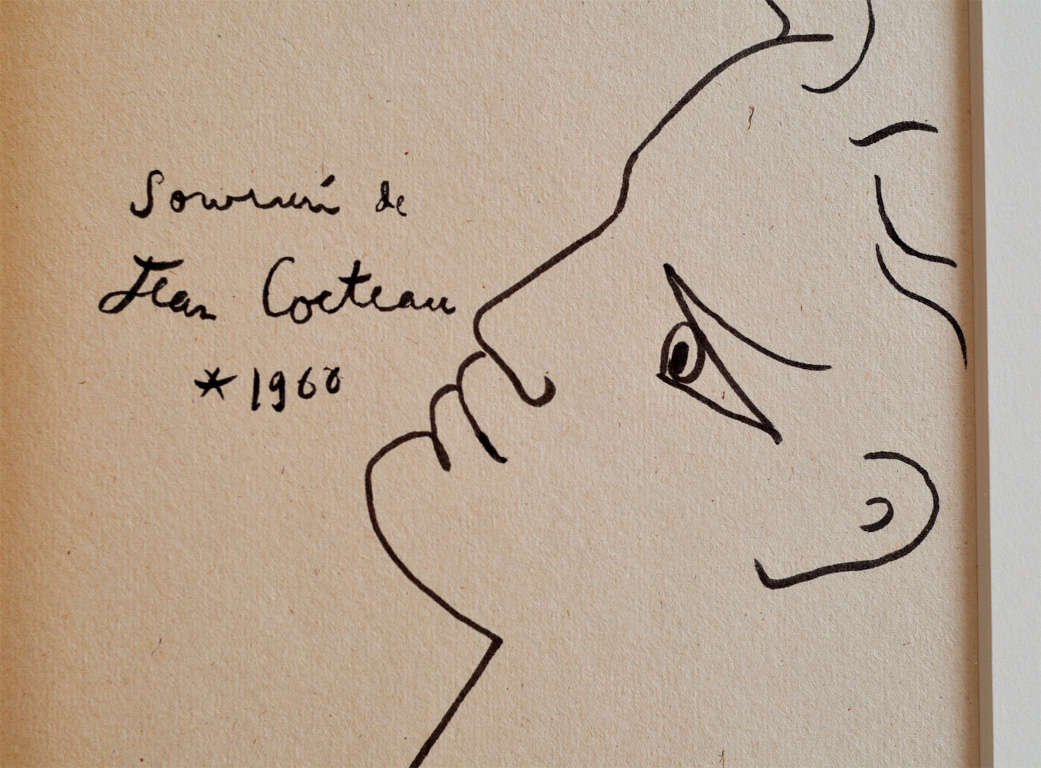 Souvenir de
Jean Cocteau
* 1960